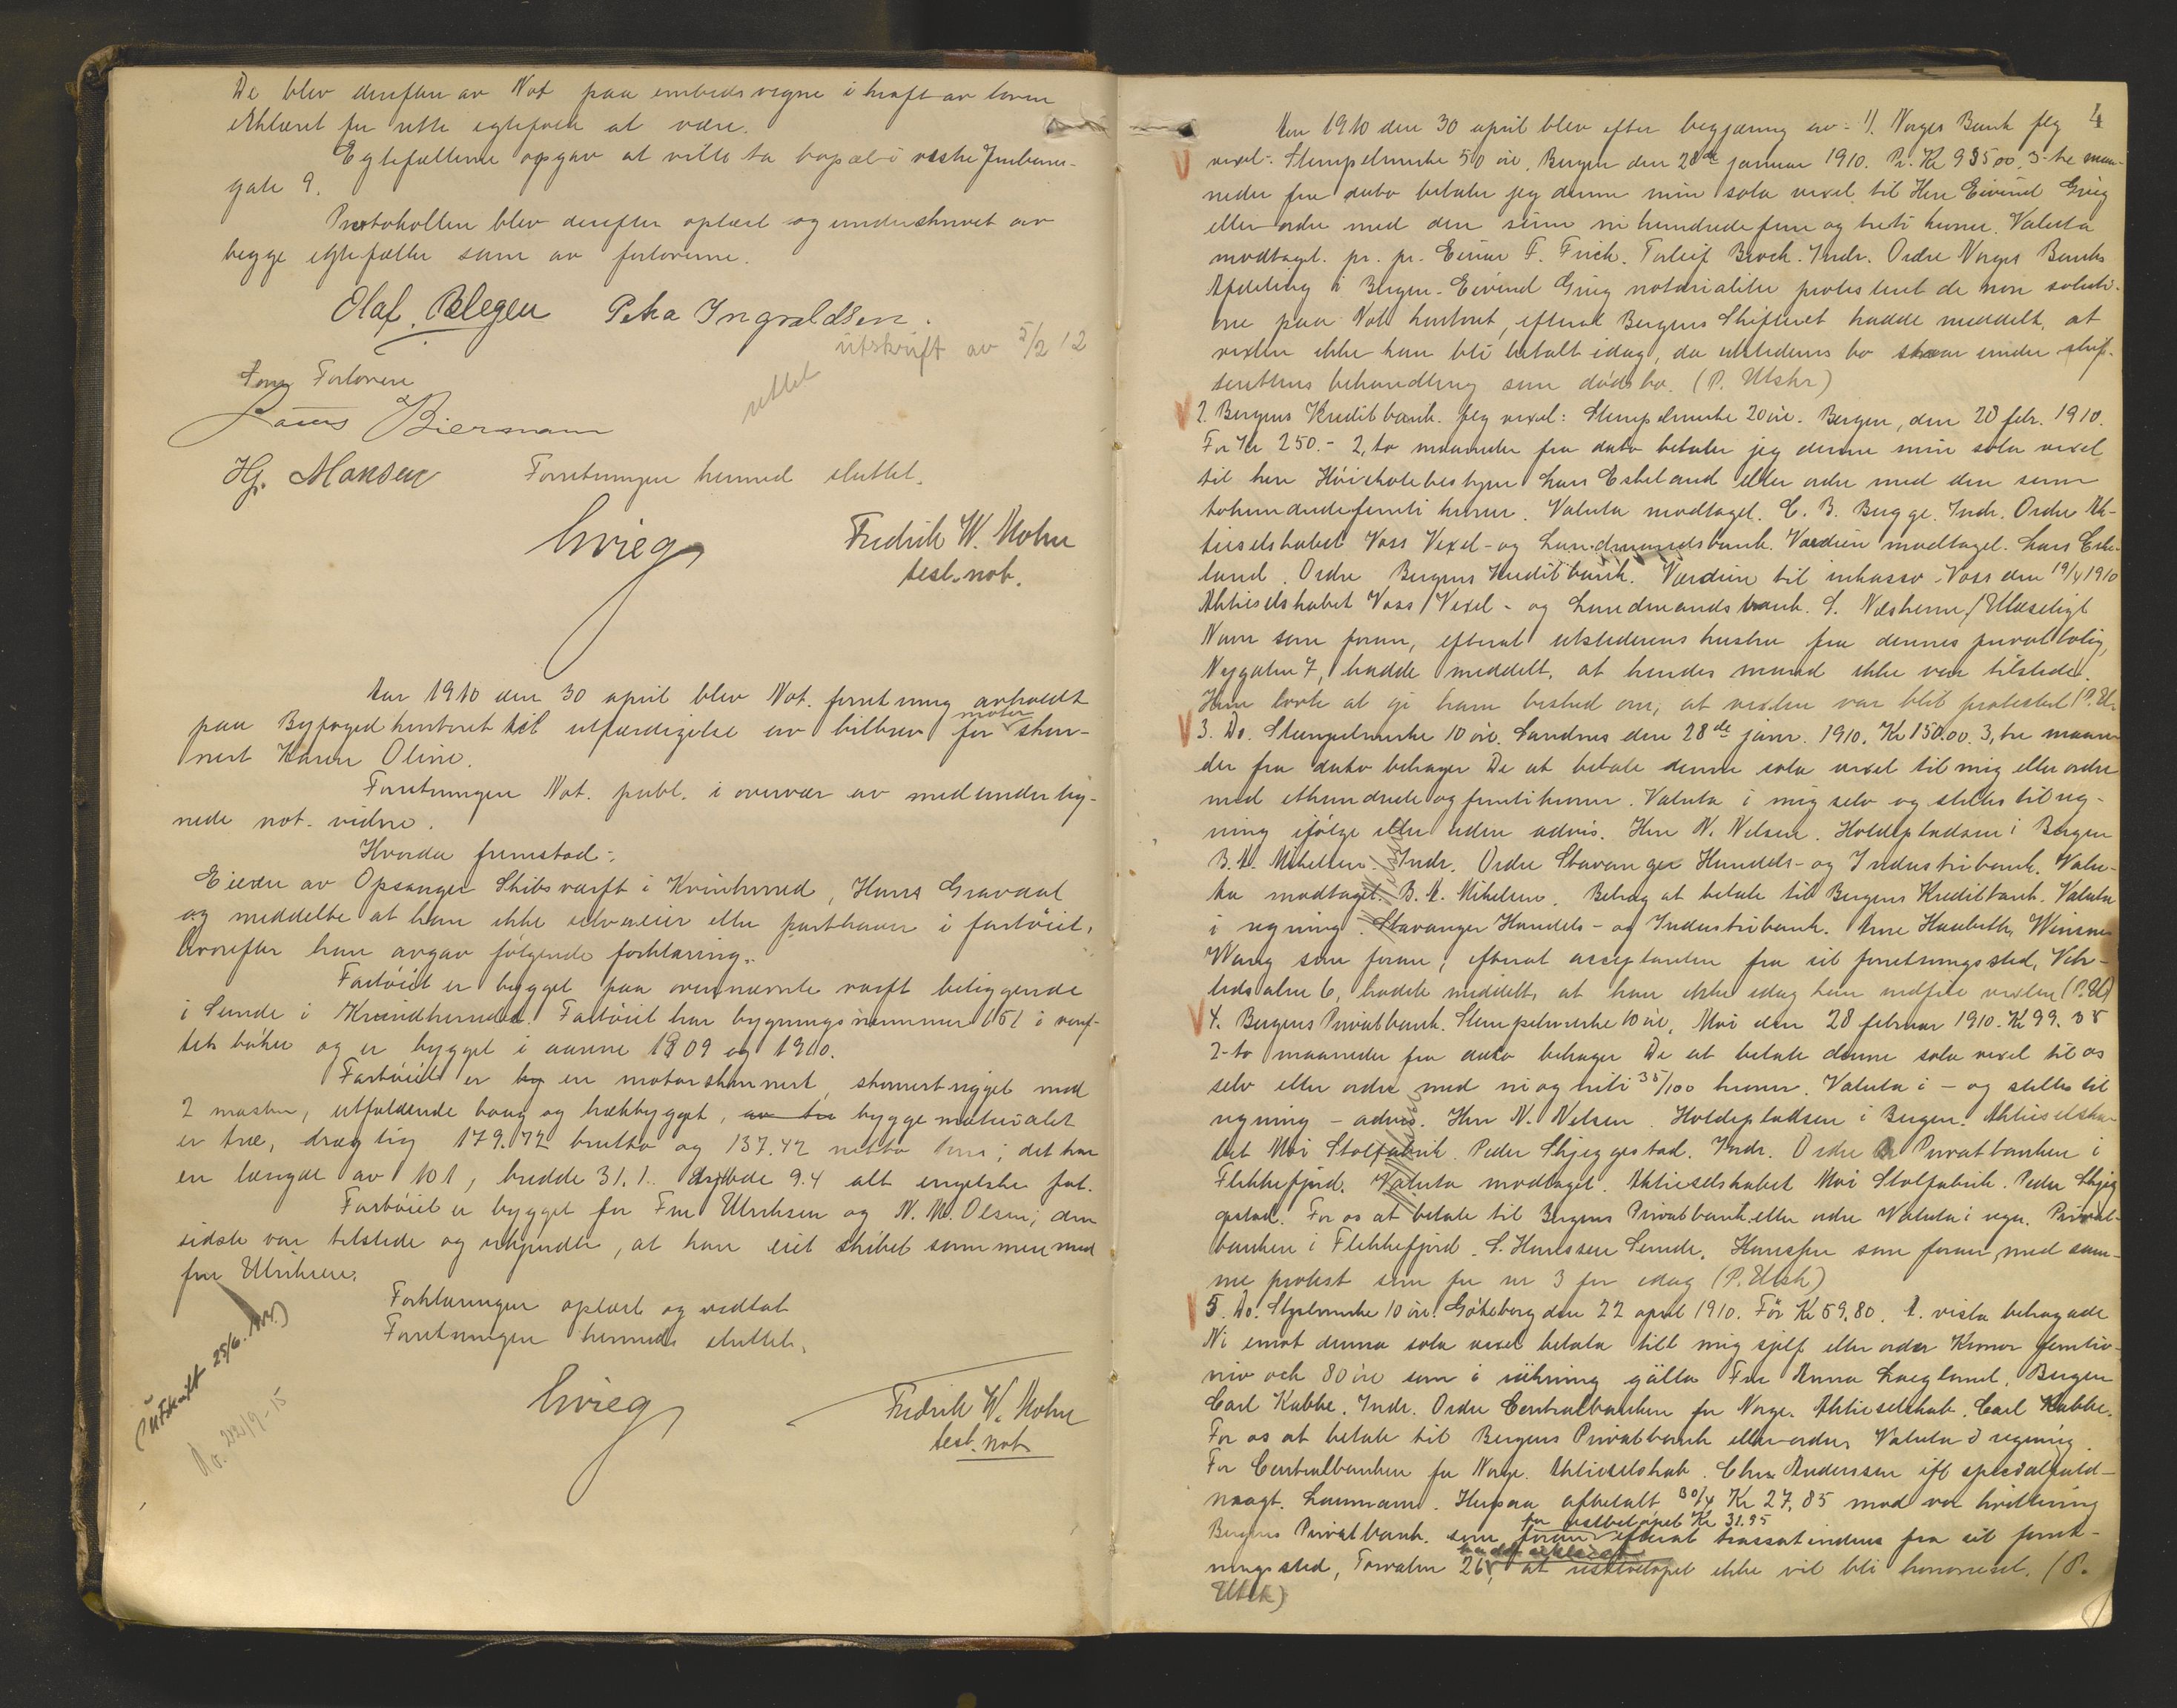 De blev derefter av Not paa embeds vegne i kraft av loven
erklæret for rette egtefolk at være.
Egtefællerne opgav at ville ta bopæl i vestre Jernbane-
gate 9.
Protokollen blev derefter oplæst og underskrevet av
begge egtefæller som av forloverne.
Olaf Petra Ingvaldsen.
utskrift av 5/2 12
rettet
Som Forlovere
Biermann
Hj. Monsen Forretningen hermed sluttet.
Fredrik W. Mohn
test. not.
Aar 1910 den 30 april blev Not. forretning avholdt
paa Byfogedkontoret til utfærdigelse av bilbrev for motor skon-
nert Karen Oline.
Forretningen Not. publ. i overvær av medunderteg-
nede not. vidne.
Hvorda fremstod:
Eieren av Opsanger Skibsværft i Kvinhered, Hans Gravdal
og meddelte at han ikke selv eier eller parthaver i fartöiet,
hvorefter han avgav følgende forklaring:
Fartöiet er bygget paa ovennævnte værft beliggende
i Sunde i Kvindhered. Fartöiet har bygningsnummer 151 i værf-
tets böker og er bygget i aarene 1909 og 1910.
Fartöiet er by en motorskonnert, skonnertrigget med
2 master, utfaldende boug og hækbygget, av tre byggematerialet
er træ, drægtig 179.72 brutto og 137.42 netto tons; det har
en længde av 101, bredde 31.1. dybde 9.4 alt engelske fot.
Fartöiet er bygget for Fru Ulriksen og N. M. Olsen; den
sidste var tilstede og erkjendte, at han eiet skibet sammen med
fru Ulriksen.
Forklaringen oplæst og vedtat
Forretningen hermed sluttet.
(Utskrift 25/6.
22/9-15
Fredrik W. Mohn
test. not.
4
Aar 1910 den 30 april blev efter begjæring av: 1). Norges Bank flg
vexel: Stempelmerke 50 øre, Bergen den 28de januar 1910. Pr. Kr 935 00 3-tre maa-
neder fra dato betaler jeg denne min sola vexel til Herr Eivind Grieg
eller ordre med den sum ni hundrede fem og treti kroner. Valuta
modtaget. pr. pr. Einar F. Frich. Torleif Broch. Indr. Ordre Norges Banks
Afdeling i Bergen. Eivind Grieg notarialiter protestert de non soluti-
one paa Not kontoret, efterat Bergens Skifteret hadde meddelt, at
vexlen ikke kan bli betalt idag, da utstederens bo staar under skif-
terettens behandling som dødsbo. (P. Utskr)
2. Bergens Kreditbank. flg vexel: Stempelmerke 20 øre. Bergen, den 28 febr. 1910.
For Kr 250.- 2, to maaneder fra dato betaler jeg denne min sola vexel
til herr Höiskolebestyrer Lars Eskeland eller ordre med den sum
tohundredefemti kroner. Valuta modtaget. C. B. Bugge. Indr. Ordre Ak-
tieselskabet Voss Vexel- og Landmandsbank. Værdien modtaget. Lars Eske-
land. Ordre Bergens Kreditbank. Værdien til inkasso. Voss den 19/4 1910
Aktieselskabet Voss Vexel- og Landmandsbank. Ulæseligt
Navn som foran, efterat utstederens hustru fra dennes privatbolig,
Nygaten 7, hadde meddelt, at hendes mand ikke var tilstede.
Hun lovte at gi ham besked om, at vexlen var blit protestert (P. U.
3. Do. Stempelmerke 10 øre. Sandnes den 28de janr. 1910. Kr 150.00. 3, tre maane-
der fra dato behager De at betale denne sola vexel til mig eller ordre
med ethundrede og femti kroner. Valuta i mig selv og stilles til reg-
ning ifölge eller uden advis. Herr N. Nelsen. Holdepladsen i Bergen
B. A. Mikelsen. Indr. Ordre Stavanger Handels- og Industribank. Valu-
ta modtaget. B. A. Mikelsen. Beløp at betale til Bergens Kreditbank. Valuta
i regning. Stavanger Handels- og Industribank.
som foran, efterat acceptanten fra sit forretningssted,
6, hadde meddelt, at han ikke idag kan indfri vexlen (P. U.)
4. Bergens Privatbank. Stempelmerke 10 øre, Moi den 28 februar 1910. Kr 99.35
2-to maaneder fra dato behager De at betale denne sola vexel til os
selv eller ordre med ni og niti 35/100 kroner. Valuta i - og stilles til
regning - advis. Herr N. Nelsen. Holdepladsen i Bergen. Aktieselska-
bet Moi Stolfabrik. Peder Skjeggestad. Indr. Ordre Privatbanken i
Flekkefjord. Valuta modtaget. Aktieselskabet Moi Stolfabrik. Peder Skjeg
gestad. For os at betale til Bergens Privatbank eller ordre Valuta i regn. Privat-
banken i Flekkefjord. som foran, med sam-
me protest som for nr 3 for idag (P. Utsk)
5. Do. Stpelmerke 10 øre. Göteborg den 22 april 1910. För Kr 59,80. A vista behagade
Ni emot denna sola vexel betala till mig sjelf eller order Kronor femtio-
nio och 80 öre som i räkning gälla Fru Anna Bergen
Carl Kabbe. Indr. Ordre Centralbanken for Norge. Aktieselskab. Carl Kabbe.
For os at betale til Bergens Privatbank eller ordre, Valuta i regning.
For Centralbanken for Norge. Aktieselskab. Chr. Anderssen ifl specialfuld-
magt. Laumann. Herpaa afbetalt 30/4 Kr 27,85 mod vor kvittering
Bergens Privatbank. som foran for restbelöpet Kr 31.95 efterat trassatindens fra sit forret-
ningssted, Torvalm 26, hadde erklæret at restbelöpet ikke vil bli honoreret. (P.
Utsk)